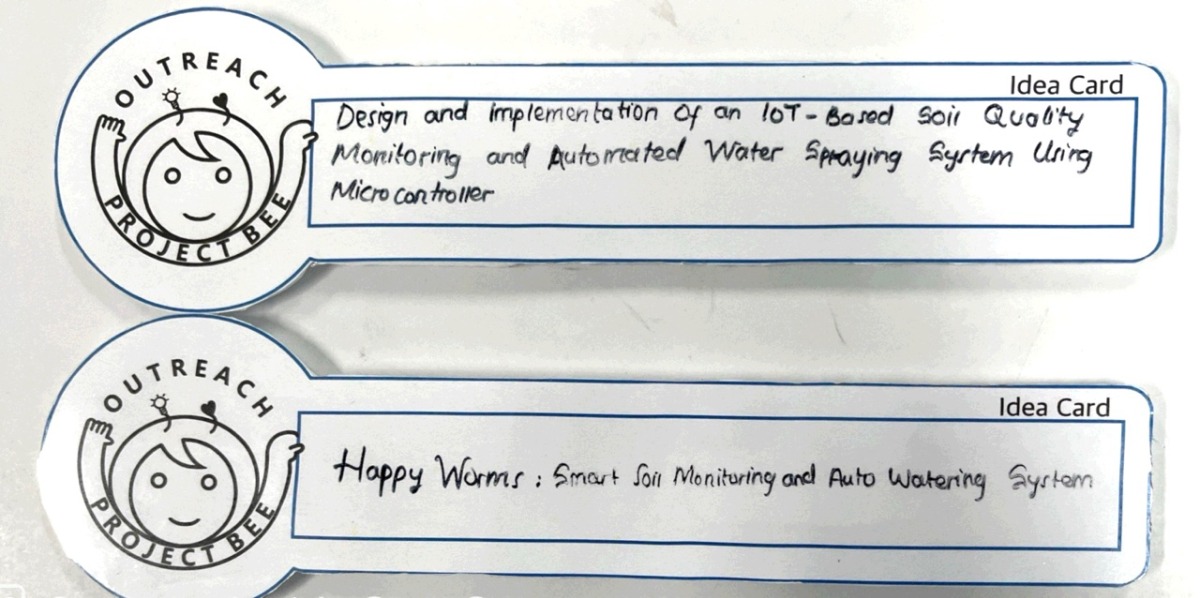 OUTREACH
PROJECT BEE
Idea Card
Design and implementation of an IoT-Based Soil Quality
Monitoring and Automated Water Spraying System Using
Microcontroller
OUTREACH
PROJECT BEE
Idea Card
Happy Worms : Smart Soil Monitoring and Auto Watering System